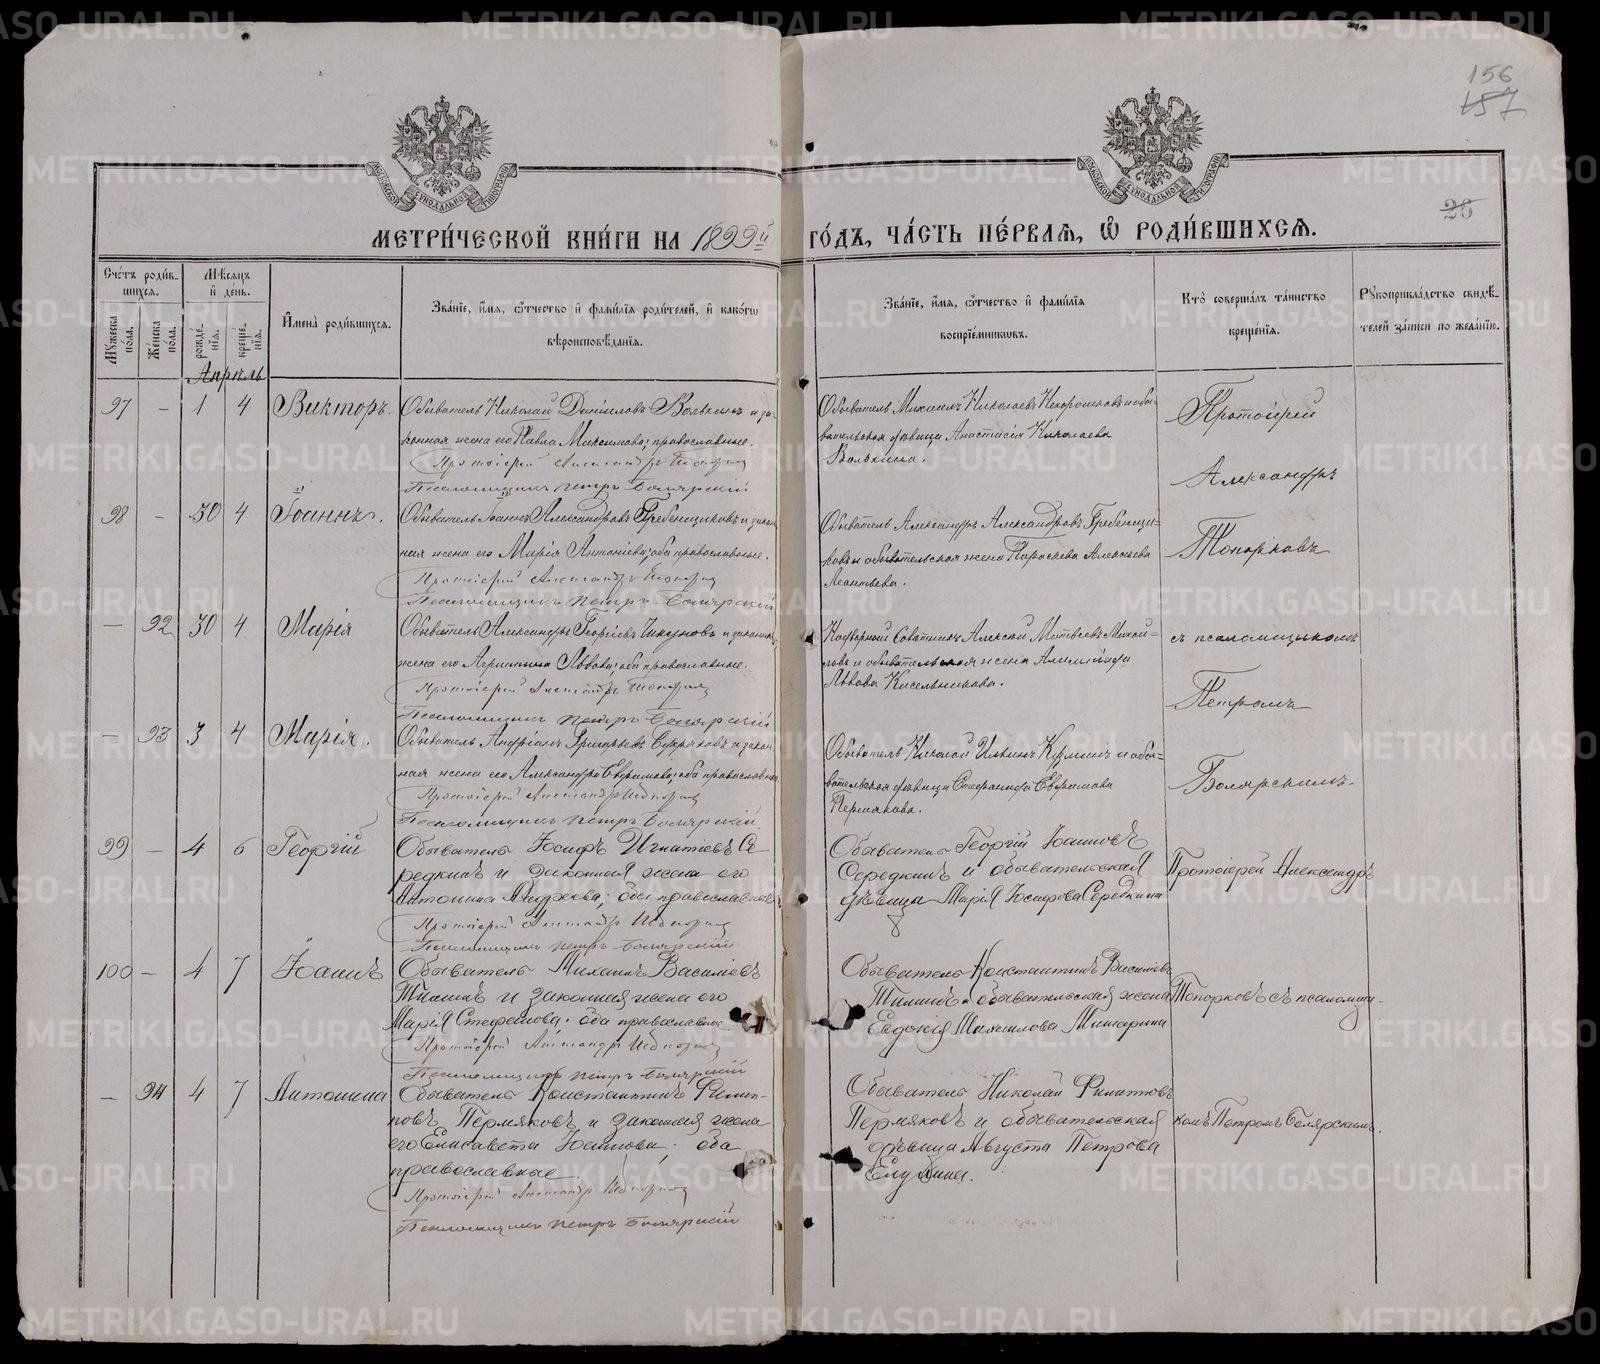 156
157
26
МОСКОВСКОЙ СУНОДАЛЬНОЙ ТИПОГРАФІИ
МОСКОВСКОЙ СУНОДАЛЬНОЙ ТИПОГРАФІИ
МЕТРИ́ЧЕСКОЙ КНИ́ГИ НА 1899й ГО́ДЪ, ЧА́СТЬ ПЕ́РВАѦ, Ѽ РОДИ́ВШИХСѦ.
Сче́тъ роди́вшихсѧ.
Мꙋ́жеска по́ла.
Же́нска по́ла.
Мѣ́сѧцъ и҆ де́нь.
рожде́нїѧ.
креще́нїѧ.
И҆мена̀ роди́вшихсѧ.
Зва́нїе, и҆́мѧ, ѻ҆́тчество и҆ фами́лїѧ роди́телей, и҆ како́гѡ
вѣроисповѣ́данїѧ.
Зва́нїе, и҆́мѧ, ѻ҆́тчество и҆ фами́лїѧ
воспрїе́мникѡвъ.
Кто̀ соверша́лъ та́инство
креще́нїѧ.
Рꙋкоприкла́дство свидѣ́-
телей за́писи по жела́нїю.
Апрѣль
97 – 1 4 Викторъ.
Обыватель Николай Даниловъ Волкинъ и за-
конная жена его Павла Максимова; православные.
Протоіерей Александръ Топорковъ
Псаломщикъ Петръ Боярскій
Обыватель Михаилъ Николаевъ Нехорошковъ и обы-
вательская дѣвица Анастасія Николаева
Волкина.
Протоіерей
Александръ
98 – 30 4 Іоаннъ.
Обыватель Іоаннъ Александровъ Гребенщиковъ и закон-
ная жена его Марія Антоніева; оба православные.
Протоіерей Александръ Топорковъ
Псаломщикъ Петръ Боярскій
Обыватель Александръ Александровъ Гребенщи-
ковъ и обывательская жена Параскева Алексѣева
Леонтьева.
Топорковъ
– 92 30 4 Марія
Обыватель Александръ Георгіевъ Чикуновъ и законная
жена его Агриппина Львова; оба православные.
Протоіерей Александръ Топорковъ
Псаломщикъ Петръ Боярскій
Надворный Совѣтникъ Алексѣй Матвѣевъ Михай-
ловъ и обывательская жена
Львова Кисельникова.
съ псаломщикомъ
Петромъ
– 93 3 4 Марія.
Обыватель Андріанъ Григорьевъ и закон-
ная жена его Александра Ефимова; оба православные
Протоіерей Александръ Топорковъ
Псаломщикъ Петръ Боярскій
Обыватель Николай Ильинъ Кузминъ и обы-
вательская дѣвица Стефанида Ефимова
Пермякова.
Боярскимъ.
99 – 4 6 Георгій
Обыватель Іосифъ Игнатіевъ Се-
редкинъ и законная жена его
Антонина Андреева; оба православные
Протоіерей Александръ Топорковъ
Псаломщикъ Петръ Боярскій
Обыватель Георгій Іоанновъ
Середкинъ и обывательская
дѣвица Марія Іосифова Середкина
Протоіерей Александръ
100 – 4 7 Іоаннъ
Обыватель Михаилъ Василіевъ
Тилинъ и законная жена его
Марія Стефанова. оба православные
Протоіерей Александръ Топорковъ
Псаломщикъ Петръ Боярскій
Обыватель Константинъ Василіевъ
Тилинъ и обывательская жена
Евдокія Михаилова Мишарина
Топорковъ съ псаломщи-
– 94 4 7 Антонина
Обыватель Константинъ Филип-
повъ Пермяковъ и законная жена
его Елисавета Іоаннова; оба
православные.
Протоіерей Александръ Топорковъ
Псаломщикъ Петръ Боярскій
Обыватель Николай Филиповъ
Пермяковъ и обывательская
дѣвица Августа Петрова
комъ Петромъ Боярскимъ.
METRIKI.GASO-URAL.RU